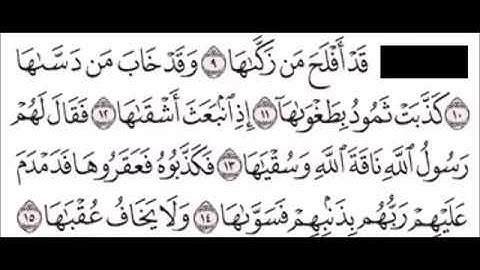 قَدْ أَفْلَحَ مَن زَكَّىٰهَا ٩ وَقَدْ خَابَ مَن دَسَّىٰهَا
١٠ كَذَّبَتْ ثَمُودُ بِطَغْوَىٰهَا ١١ إِذِ ٱنۢبَعَثَ أَشْقَىٰهَا ١٢ فَقَالَ لَهُمْ
رَسُولُ ٱللَّهِ نَاقَةَ ٱللَّهِ وَسُقْيَٰهَا ١٣ فَكَذَّبُوهُ فَعَقَرُوهَا فَدَمْدَمَ
عَلَيْهِمْ رَبُّهُم بِذَنۢبِهِمْ فَسَوَّىٰهَا ١٤ وَلَا يَخَافُ عُقْبَٰهَا ١٥